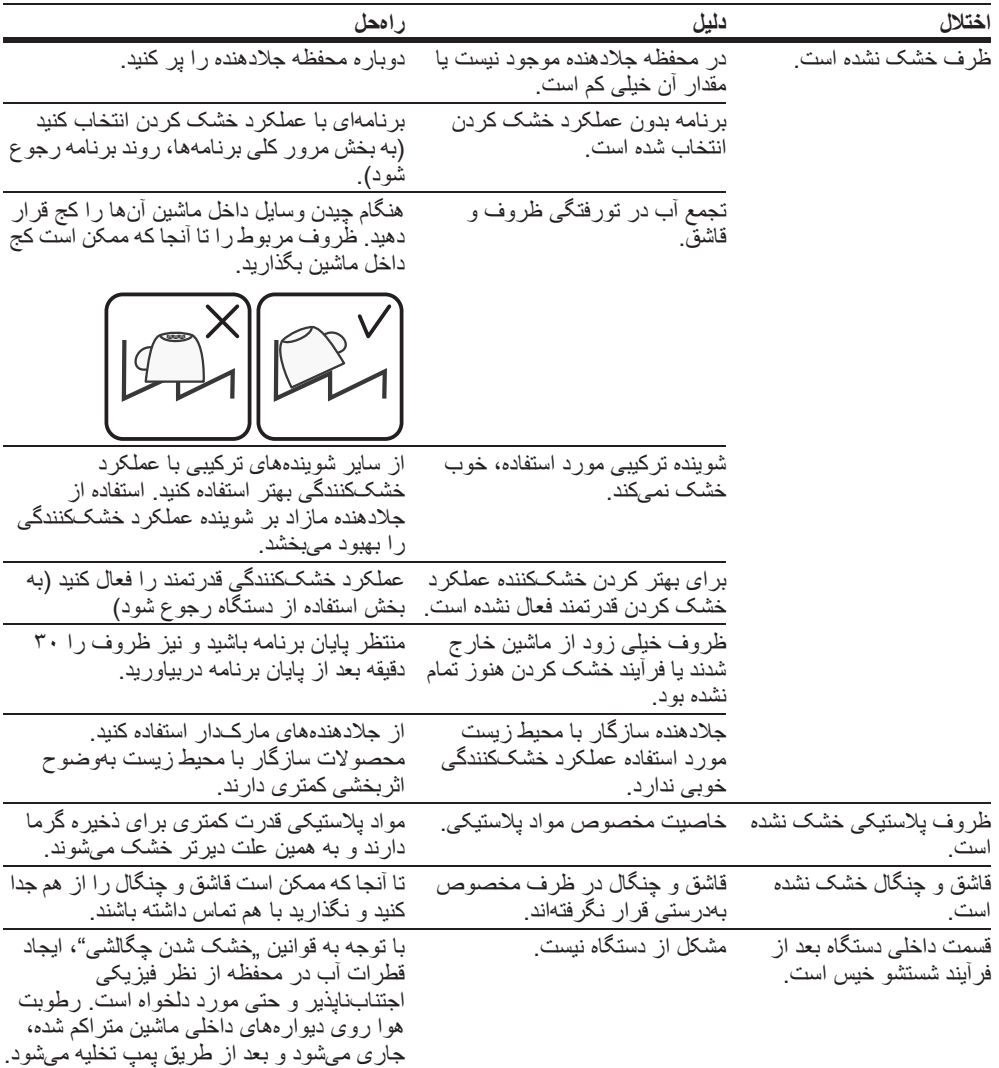 اختلال
دلیل
راه‌حل
ظرف خشک نشده است.
در محفظه جلادهنده موجود نیست یا
مقدار آن خیلی کم است.
دوباره محفظه جلادهنده را پر کنید.
برنامه بدون عملکرد خشک کردن
انتخاب شده است.
برنامه‌ای با عملکرد خشک کردن انتخاب کنید
(به بخش مرور کلی برنامه‌ها، روند برنامه رجوع
شود).
تجمع آب در تورفتگی ظروف و
قاشق.
هنگام چیدن وسایل داخل ماشین آن‌ها را کج قرار
دهید. ظروف مربوط را تا آنجا که ممکن است کج
داخل ماشین بگذارید.
شوینده ترکیبی مورد استفاده، خوب
خشک نمی‌کند.
از سایر شوینده‌های ترکیبی با عملکرد
خشک‌کنندگی بهتر استفاده کنید. استفاده از
جلادهنده مازاد بر شوینده عملکرد خشک‌کنندگی
را بهبود می‌بخشد.
برای بهتر کردن خشک‌کننده عملکرد
خشک کردن قدرتمند فعال نشده است.
عملکرد خشک‌کنندگی قدرتمند را فعال کنید (به
بخش استفاده از دستگاه رجوع شود)
ظروف خیلی زود از ماشین خارج
شدند یا فرآیند خشک کردن هنوز تمام
نشده بود.
منتظر پایان برنامه باشید و نیز ظروف را ۳۰
دقیقه بعد از پایان برنامه دربیاورید.
جلادهنده سازگار با محیط زیست
مورد استفاده عملکرد خشک‌کنندگی
خوبی ندارد.
از جلادهنده‌های مارک‌دار استفاده کنید.
محصولات سازگار با محیط زیست به‌وضوح
اثربخشی کمتری دارند.
ظروف پلاستیکی خشک نشده
است.
خاصیت مخصوص مواد پلاستیکی.
مواد پلاستیکی قدرت کمتری برای ذخیره گرما
دارند و به همین علت دیرتر خشک می‌شوند.
قاشق و چنگال خشک نشده
است.
قاشق و چنگال در ظرف مخصوص
به‌درستی قرار نگرفته‌اند.
تا آنجا که ممکن است قاشق و چنگال را از هم جدا
کنید و نگذارید با هم تماس داشته باشند.
قسمت داخلی دستگاه بعد از
فرآیند شستشو خیس است.
مشکل از دستگاه نیست.
با توجه به قوانین „خشک شدن چگالشی“، ایجاد
قطرات آب در محفظه از نظر فیزیکی
اجتناب‌ناپذیر و حتی مورد دلخواه است. رطوبت
هوا روی دیواره‌های داخلی ماشین متراکم شده،
جاری می‌شود و بعد از طریق پمپ تخلیه می‌شود.